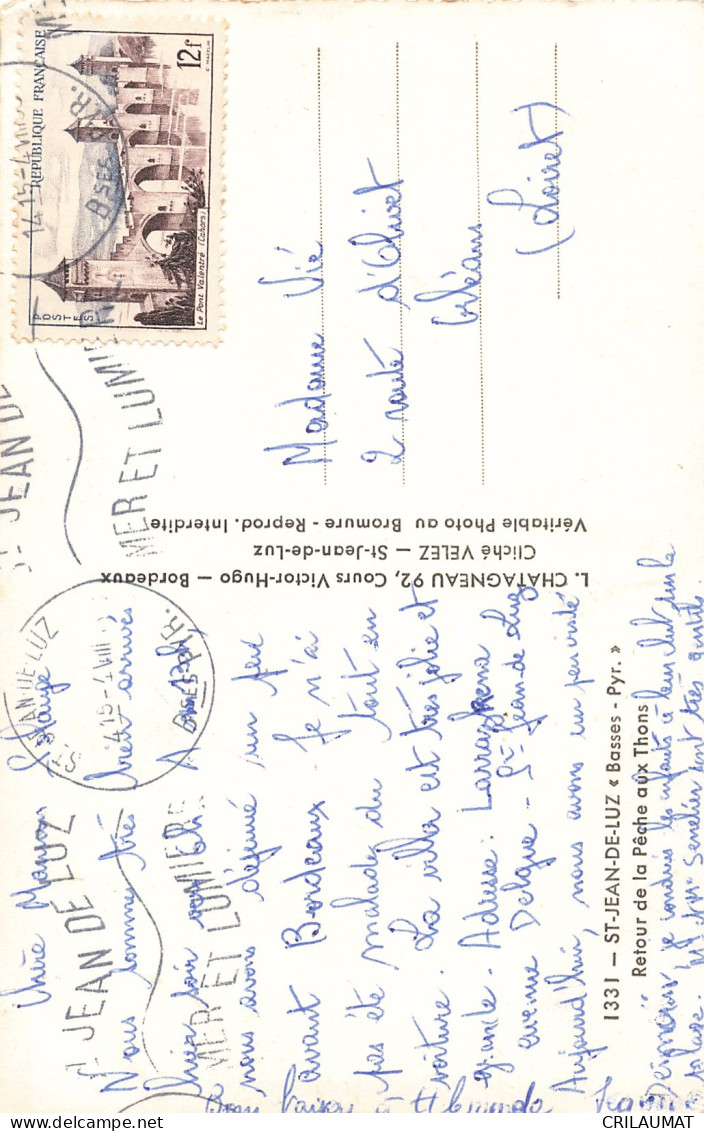 RÉPUBLIQUE FRANÇAISE
12f
POSTES
Le Pont Valentré (Cahors)
ST JEAN DE LUZ
MER ET LUMIERE
ST JEAN-DE-LUZ
14 15 - 4 VIII
BSES PYR.
ST JEAN DE LUZ
MER ET LUMIERE
Madame Vié
2 route d'Olivet
Orléans
(Loiret)
L. CHATAGNEAU 92, Cours Victor-Hugo — Bordeaux
Cliché VELEZ — St-Jean-de-Luz
Véritable Photo au Bromure - Reprod. Interdite
1331 — ST-JEAN-DE-LUZ « Basses - Pyr. »
Retour de la Pêche aux Thons
Chère Maman
Nous sommes très bien arrivés
hier soir
nous avons déjeuné un peu
avant Bordeaux. Je n'ai
pas été malade du tout en
voiture. La villa est très jolie et
grande. Adresse :
avenue - St Jean de Luz
Aujourd'hui, nous avons un peu visité
les enfants à leur club sur la
sont très gentils.
Bons baisers à
CRILAUMAT